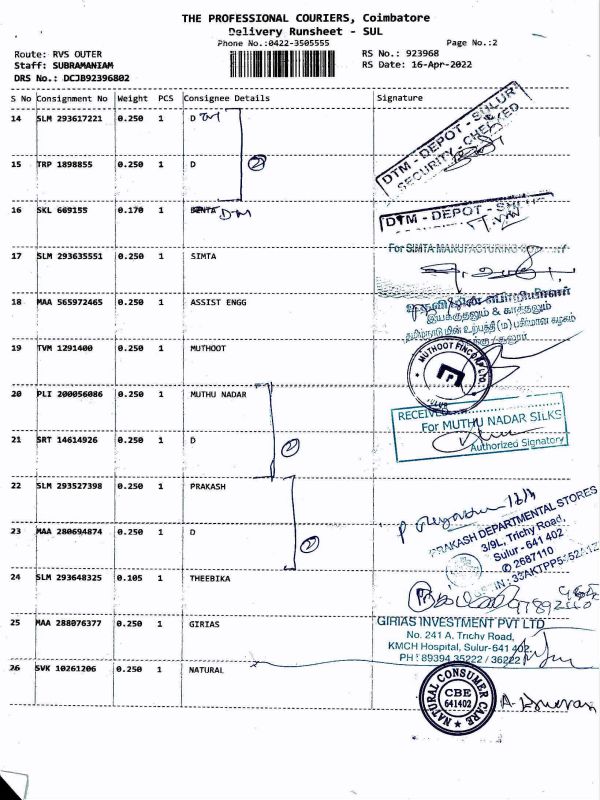 THE PROFESSIONAL COURIERS, Coimbatore
Delivery Runsheet - SUL
Phone No.:0422-3505555
Page No.:2
Route: RVS OUTER
RS No.: 923968
Staff: SUBRAMANIAM
RS Date: 16-Apr-2022
DRS No.: DCJB92396802
S No Consignment No Weight PCS Consignee Details Signature
14 SLM 293617221 0.250 1 D DM
DTM - DEPOT - SULUR
SECURITY - CHECKED
2
15 TRP 1898855 0.250 1 D
16 SKL 669155 0.170 1 DTM
DTM - DEPOT -
17 SLM 293635551 0.250 1 SIMTA
For SIMTA MANUFACTURING
18 MAA 565972465 0.250 1 ASSIST ENGG
உதவி மின் பொறியாளர்
இயக்குதலும் & காத்தலும்
19 TVM 1291400 0.250 1 MUTHOOT
MUTHOOT FINCORP LTD
20 PLI 200056086 0.250 1 MUTHU NADAR
RECEIVED
For MUTHU NADAR SILKS
Authorized Signatory
21 SRT 14614926 0.250 1 D
2
22 SLM 293527398 0.250 1 PRAKASH
PRAKASH DEPARTMENTAL STORES
3/9L, Trichy Road,
Sulur - 641 402
2687110
23 MAA 280694874 0.250 1 D
2
24 SLM 293648325 0.105 1 THEEBIKA
25 MAA 288076377 0.250 1 GIRIAS
GIRIAS INVESTMENT PVT LTD
No. 241 A, Trichy Road,
KMCH Hospital, Sulur-641 402.
PH : 89394 35222 / 36222
26 SVK 10261206 0.250 1 NATURAL
NATURAL CONSUMER CARE
CBE
641402